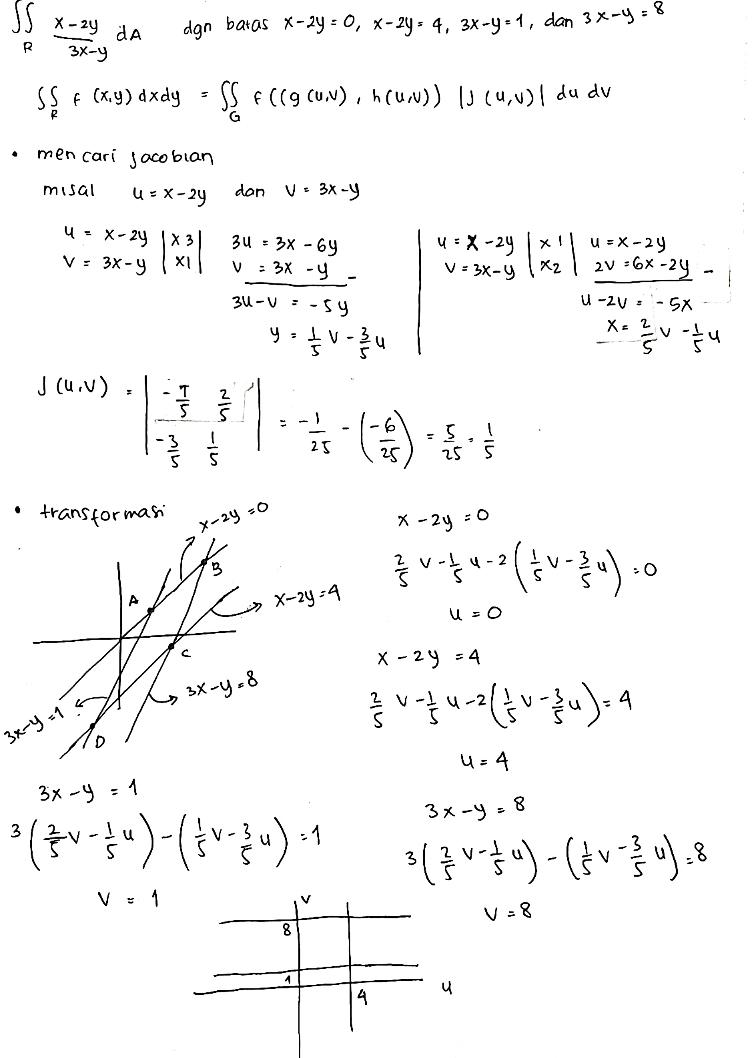 ∬_R (x-2y)/(3x-y) dA dgn batas x-2y=0, x-2y=4, 3x-y=1, dan 3x-y=8
∬_R f(x,y) dxdy = ∬_G f((g(u,v), h(u,v)) |J(u,v)| du dv
• mencari Jacobian
misal u = x-2y dan v = 3x-y
u = x-2y | x3 | 3u = 3x - 6y
v = 3x-y | x1 | v = 3x - y -
3u-v = -5y
y = 1/5 v - 3/5 u
u = x-2y | x1 | u = x-2y
v = 3x-y | x2 | 2v = 6x-2y -
u-2v = -5x
x = 2/5 v - 1/5 u
J(u,v) = | -1/5 2/5 |
| -3/5 1/5 | = -1/25 - (-6/25) = 5/25 = 1/5
• transformasi
x-2y=0
A
B
x-2y=4
C
3x-y=8
3x-y=1
D
x-2y=0
2/5 v - 1/5 u - 2(1/5 v - 3/5 u) = 0
u = 0
x-2y = 4
2/5 v - 1/5 u - 2(1/5 v - 3/5 u) = 4
u = 4
3x-y = 1
3(2/5 v - 1/5 u) - (1/5 v - 3/5 u) = 1
v = 1
3x-y = 8
3(2/5 v - 1/5 u) - (1/5 v - 3/5 u) = 8
v = 8
v
8
1
4
u